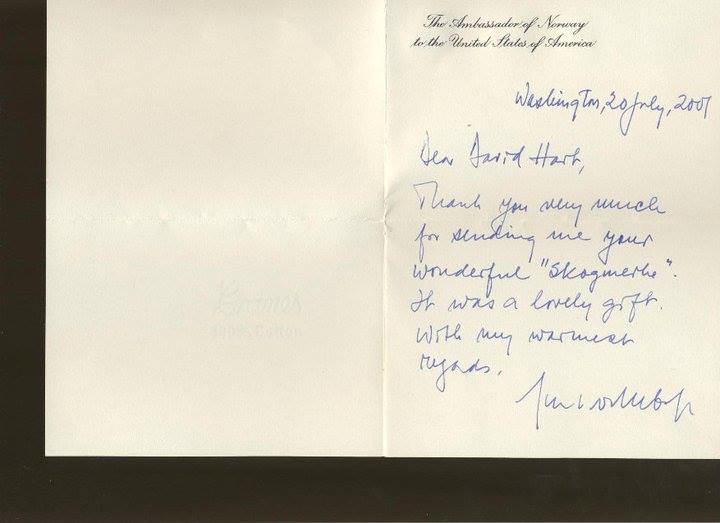 The Ambassador of Norway
to the United States of America
Washington, 20 July, 2001
Dear David Hart,
Thank you very much
for sending me your
wonderful "Skogmerke".
It was a lovely gift.
With my warmest
regards,
100% Cotton